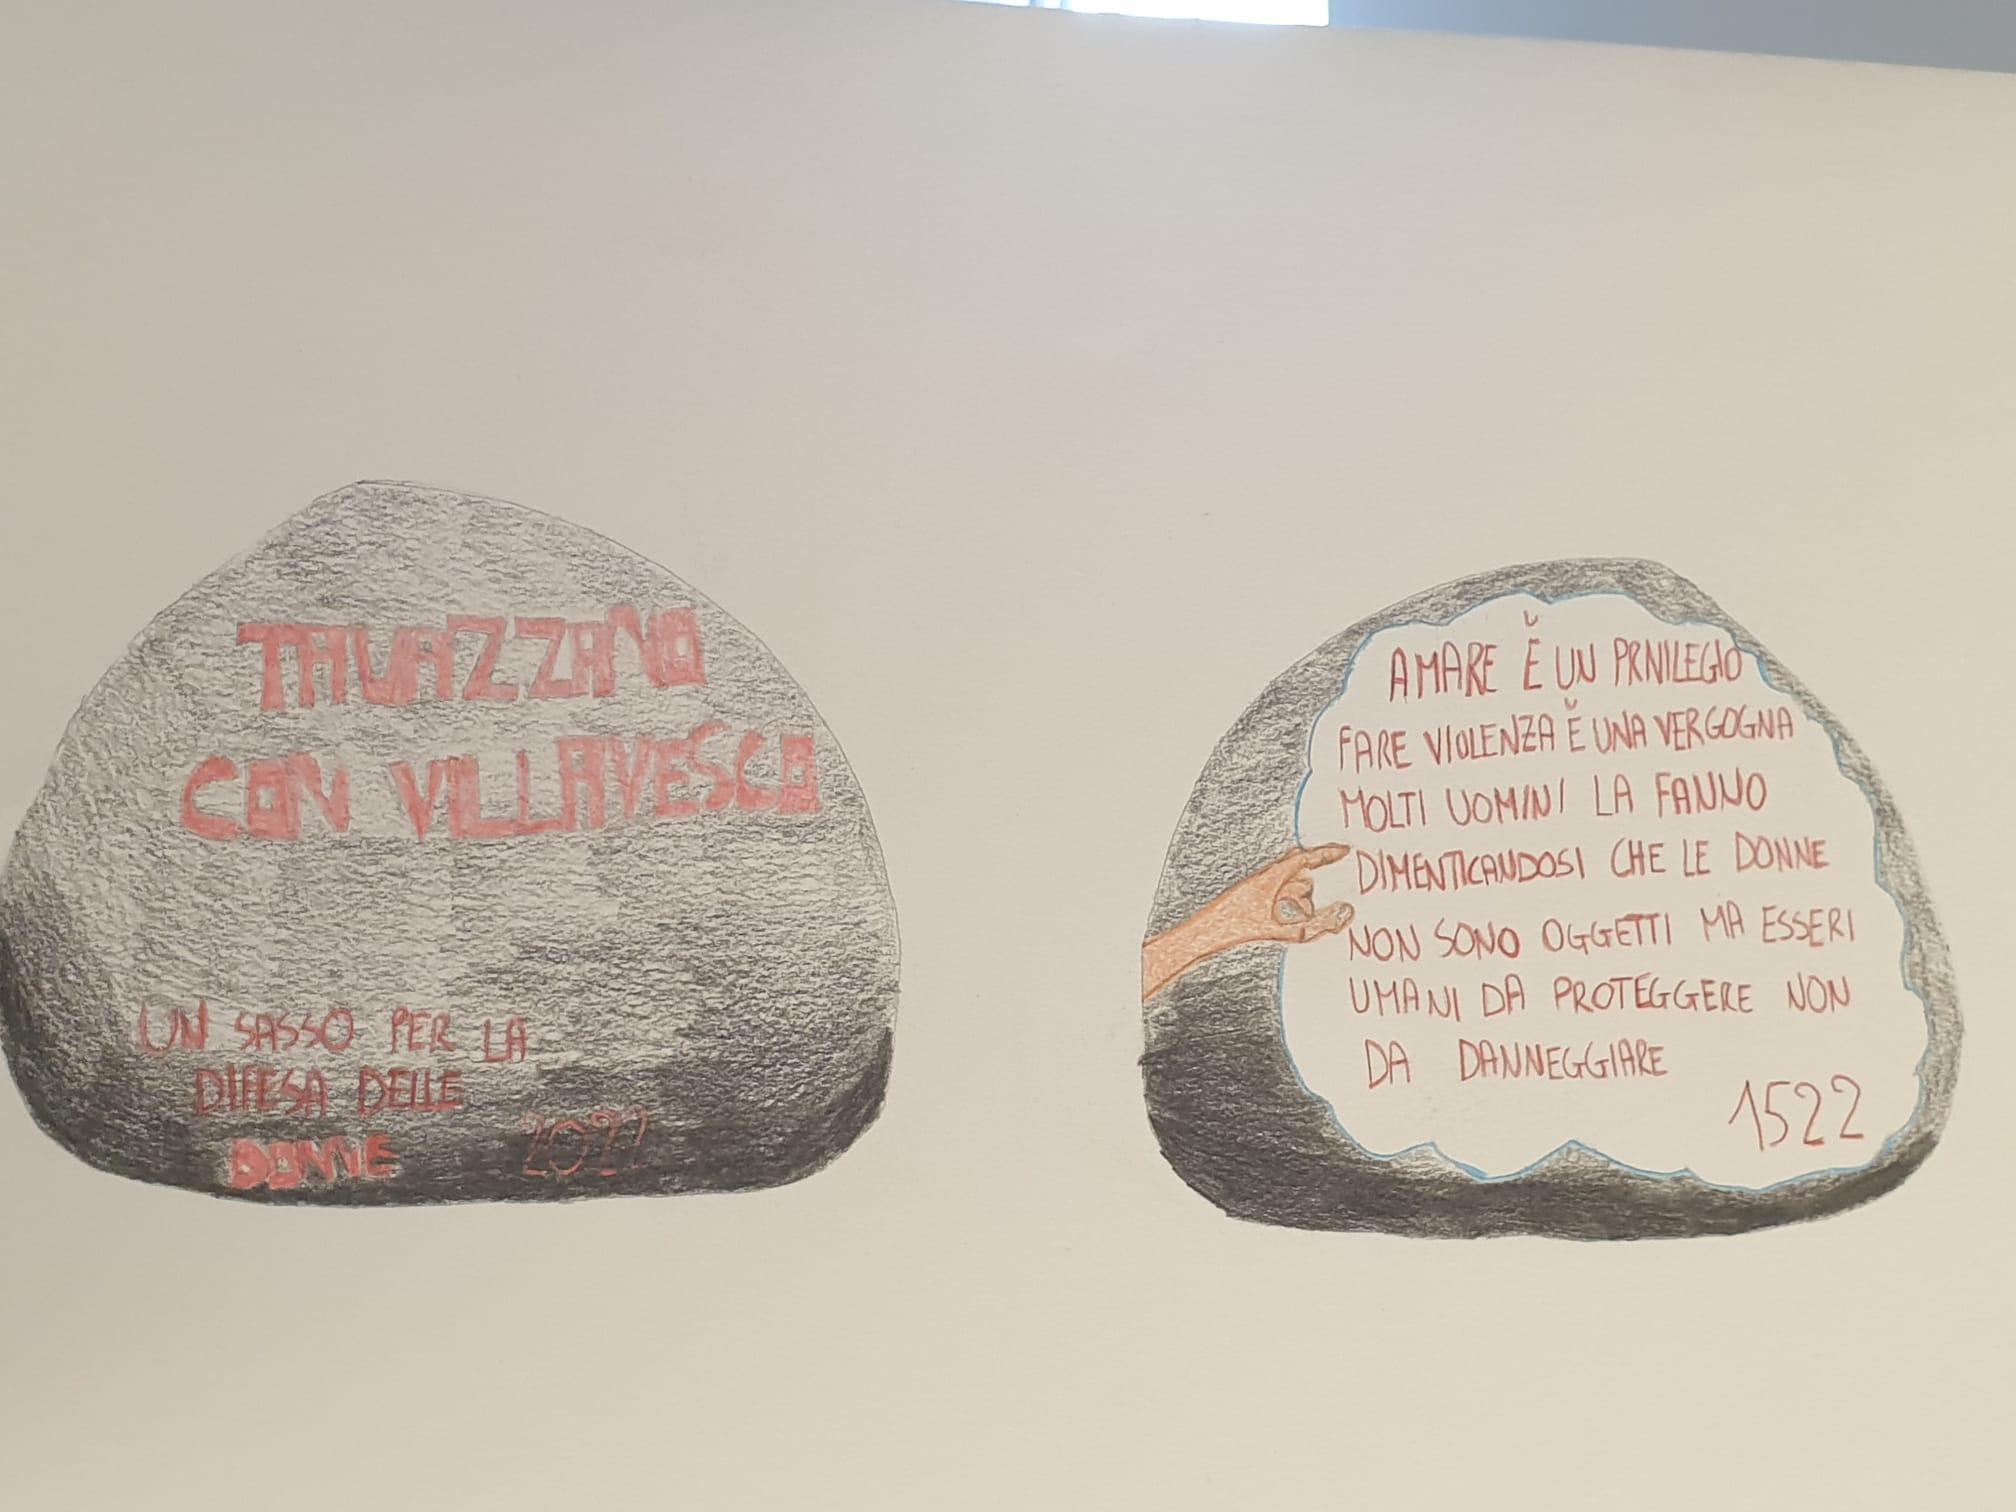 TAVAZZANO
CON VILLAVESCO
UN SASSO PER LA
DIFESA DELLE
DONNE 2022
AMARE È UN PRIVILEGIO
FARE VIOLENZA È UNA VERGOGNA
MOLTI UOMINI LA FANNO
DIMENTICANDOSI CHE LE DONNE
NON SONO OGGETTI MA ESSERI
UMANI DA PROTEGGERE NON
DA DANNEGGIARE
1522